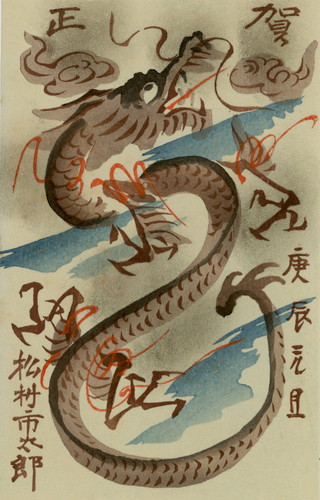 賀正
庚辰元旦
松村市太郎